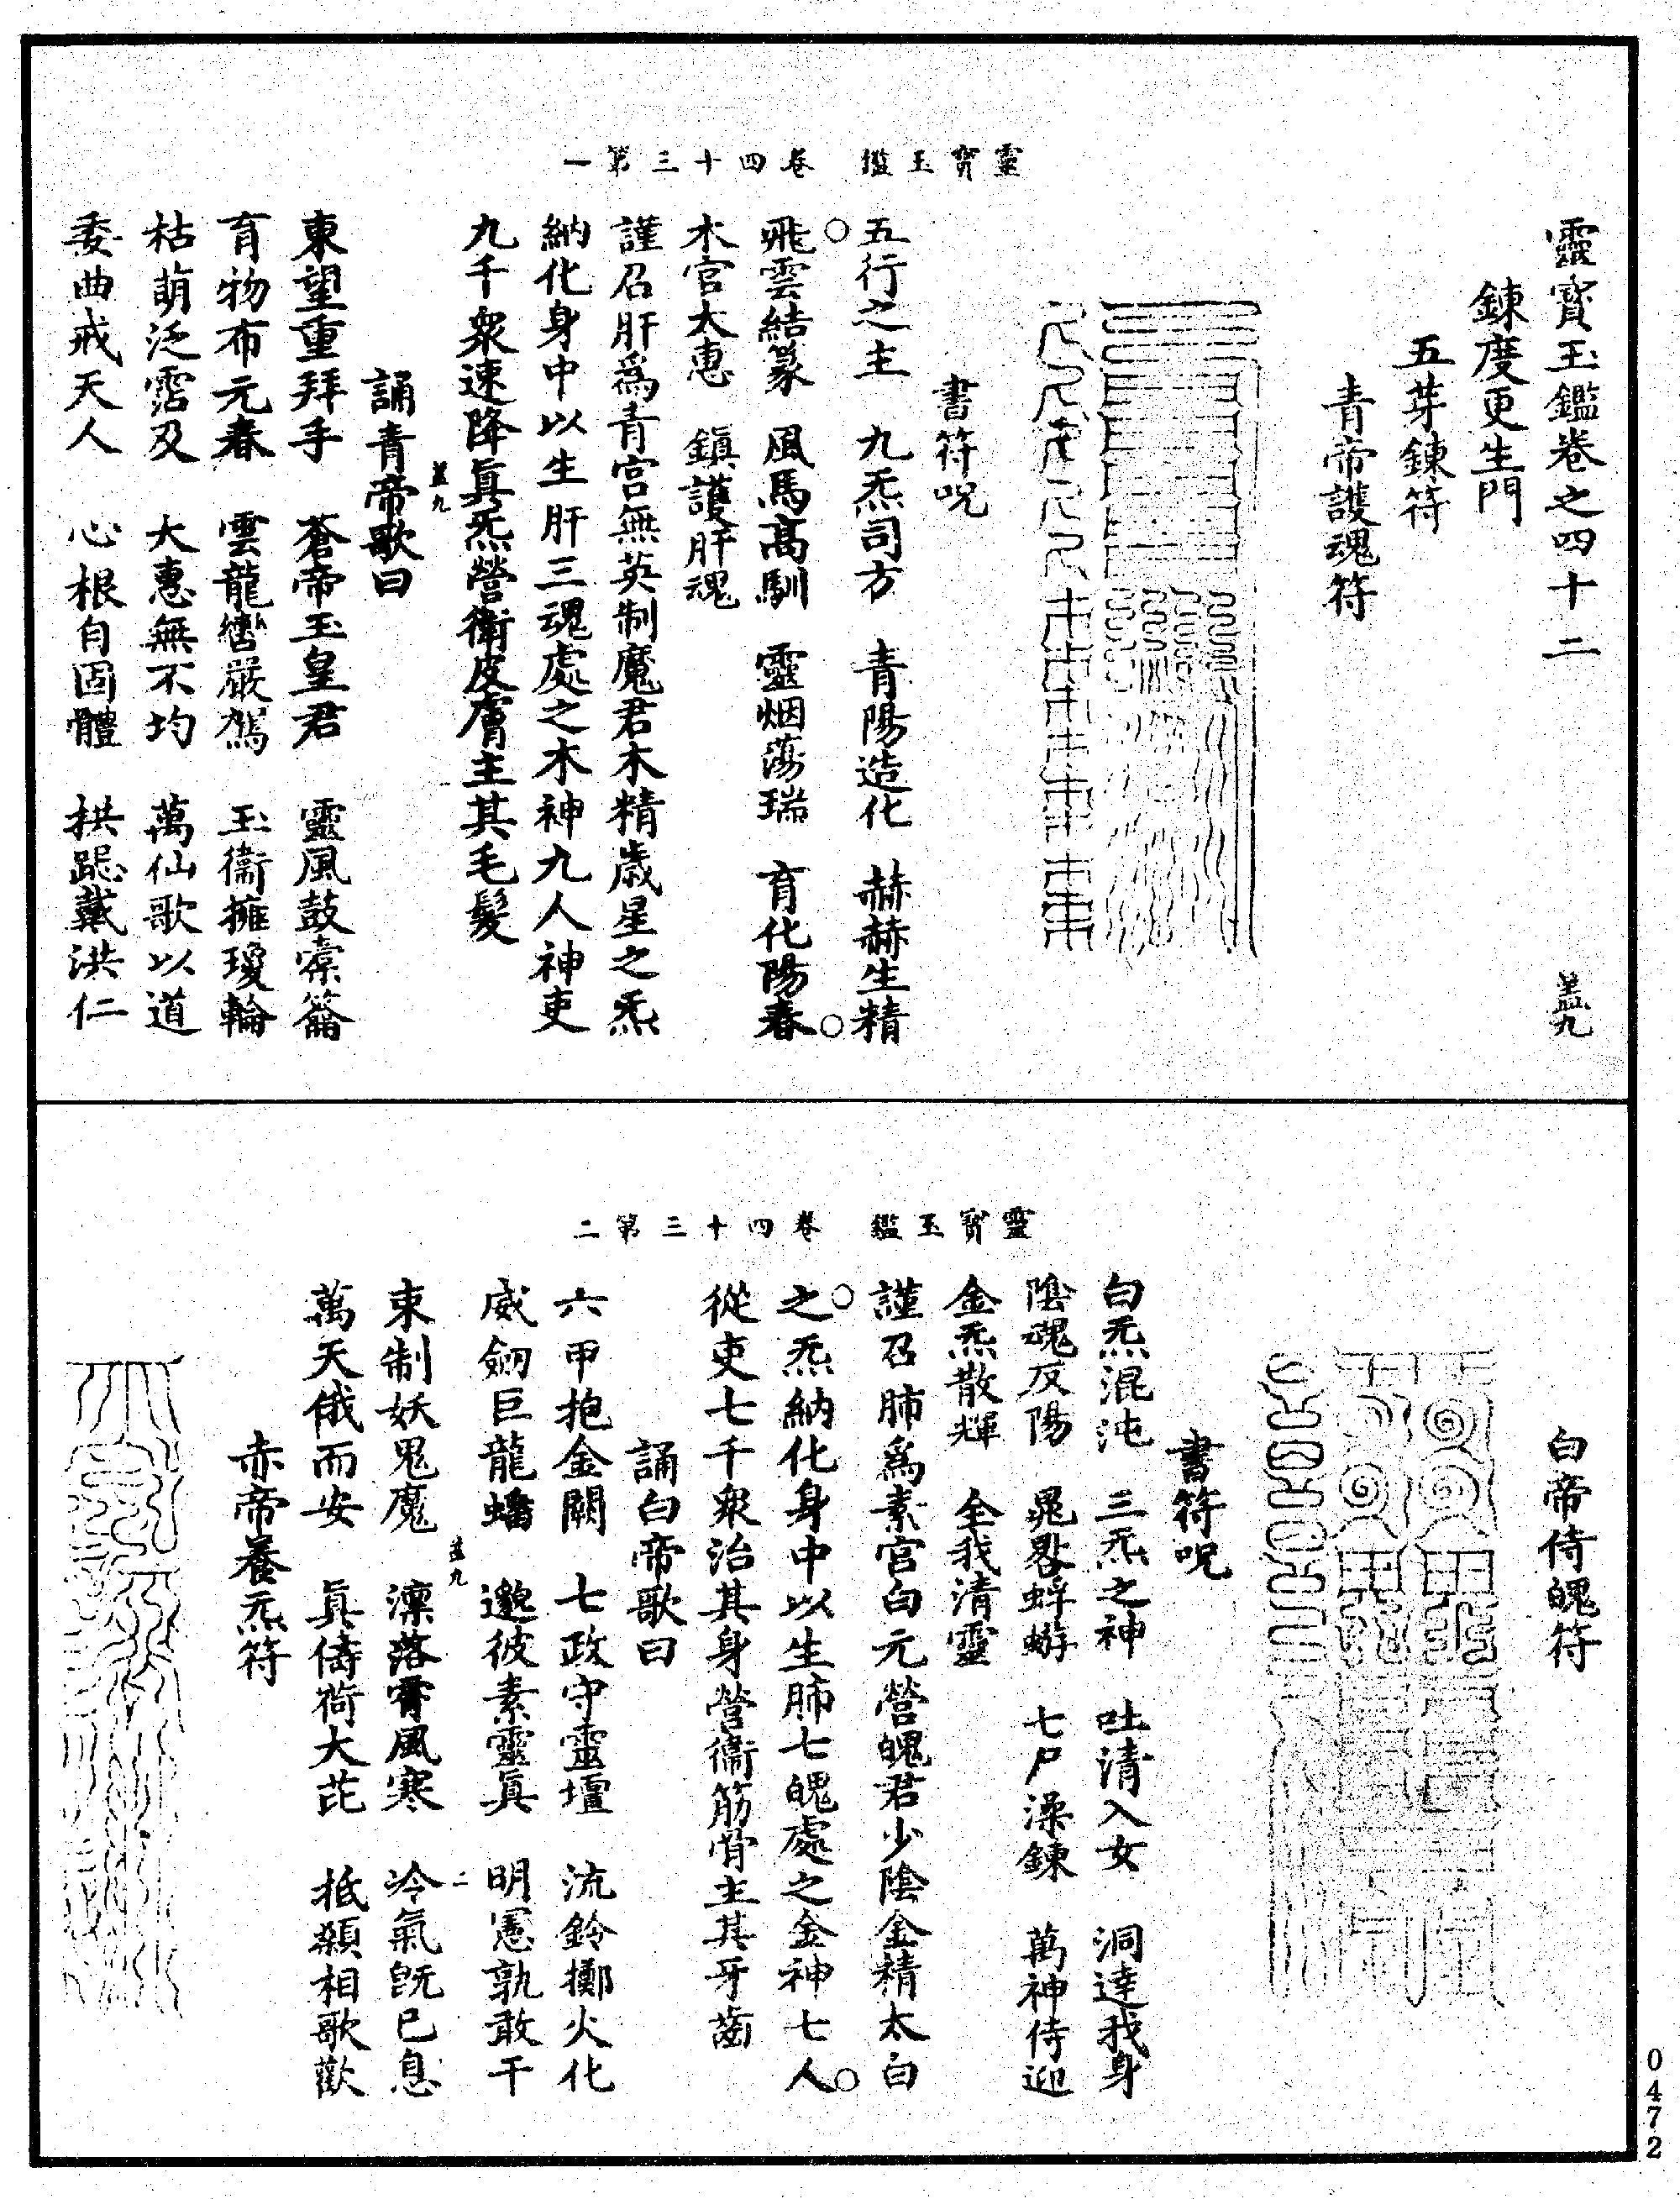 靈寳玉鑑　卷四十三第一
靈寳玉鑑卷之四十二　盖九
鍊度更生門
五芽鍊符
青帝護魂符
書符呪
五行之主　九炁司方　青陽造化　赫赫生精
飛雲結篆　風馬髙馴　靈烟蕩瑞　育化陽春
木官太惠　鎮護肝魂
謹召肝爲青宫無英制魔君木精歲星之炁
納化身中以生肝三魂處之木神九人神吏
九千衆速降眞炁營衛皮膚主其毛髮
盖九
誦青帝歌曰
東望重拜手　蒼帝玉皇君　靈風鼓橐籥
育物布元春　雲龍轡嚴駕　玉衞擁瓊輪
枯萌泛霑及　大惠無不均　萬仙歌以道
委曲戒天人　心根自固體　拱跽戴洪仁
靈寳玉鑑　卷四十三第二
白帝侍魄符
書符呪
白炁混沌　三炁之神　吐清入女　洞達我身
陰魂反陽　晁䂮蜉蝣　七尸澡鍊　萬神侍迎
金炁散輝　全我清靈
謹召肺爲素官白元營魄君少陰金精太白
之炁納化身中以生肺七魄處之金神七人
從吏七千衆治其身營衞筋骨主其牙齒
誦白帝歌曰
六甲抱金闕　七政守靈壇　流鈴擲火化
威劒巨龍蟠　邈彼素靈眞　明憲孰敢干
盖九　二
束制妖鬼魔　凛落霄風寒　冷氣旣已息
萬天俄而安　眞儔荷大芘　抵顙相歌歡
赤帝養炁符
0472